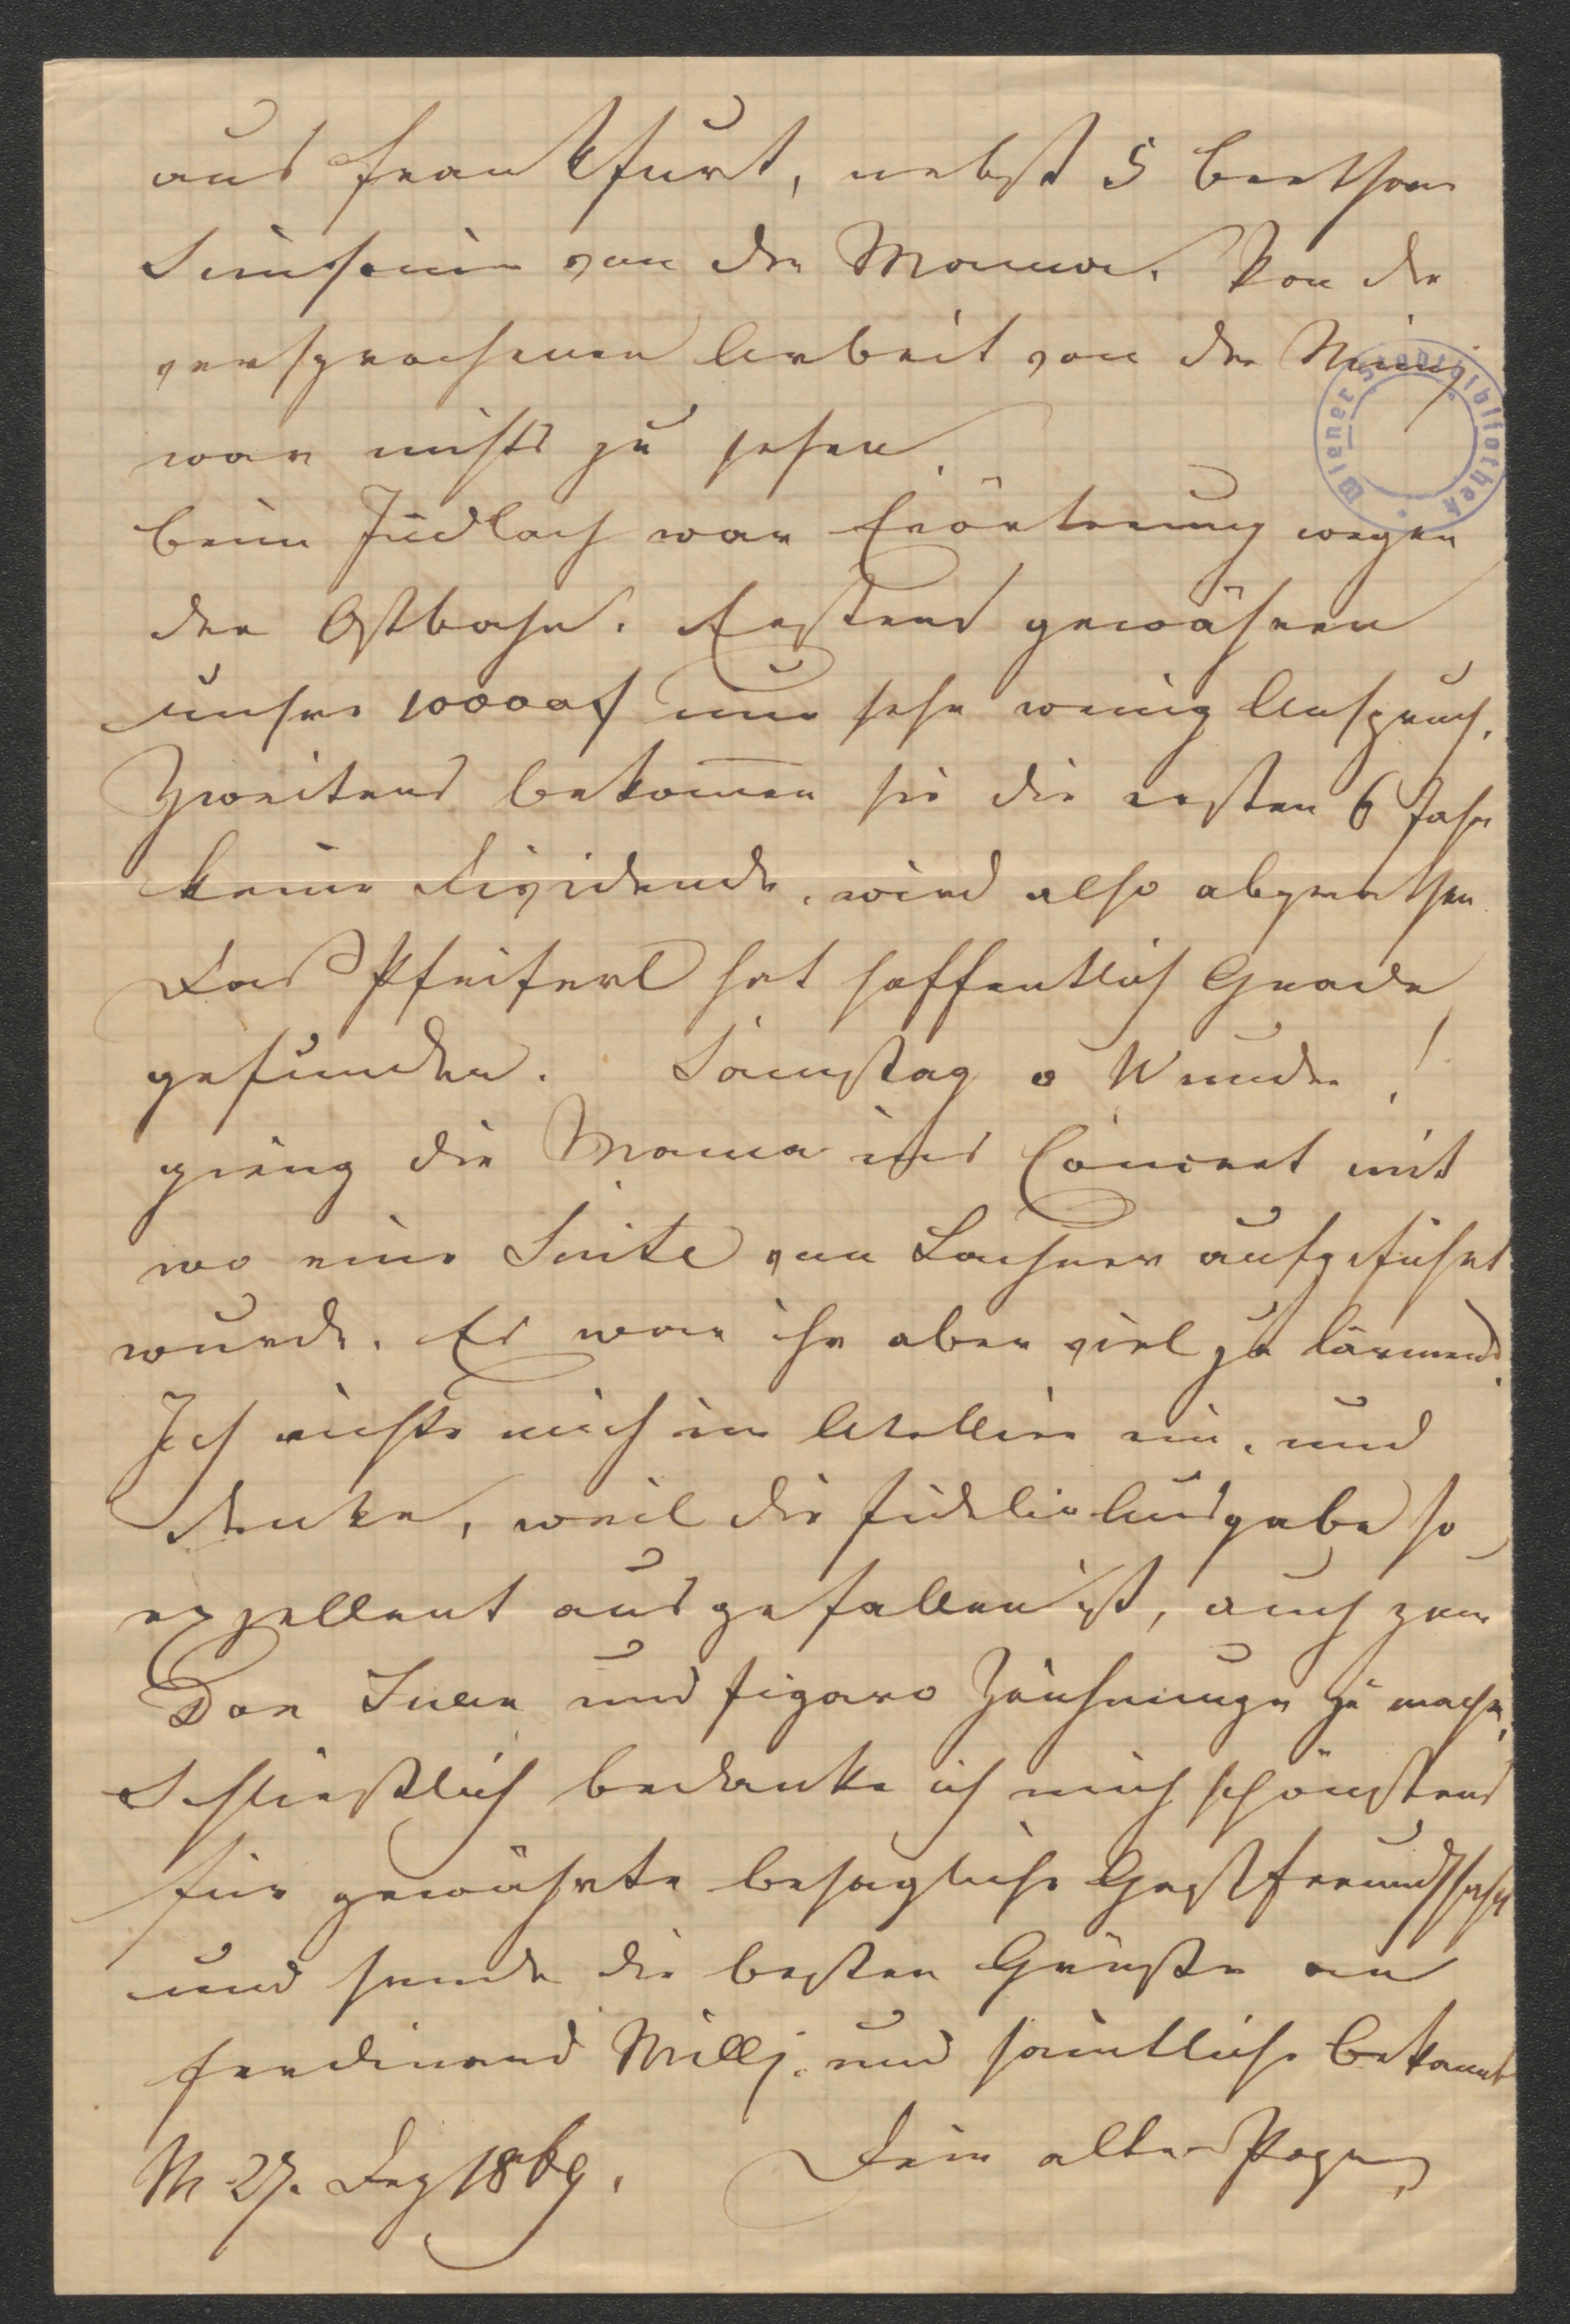 aus Frankfurt, nebst 5 Beethoven
Simfonien von der Mamma. Von der
versprochenen Arbeit von der Minj
war nichts zu sehen.
Beim Jüdlach war Erörterung wegen
der Ostbahn. Erstens gewähren
unsre 10000 f nur sehr wenig Anspruch.
Zweitens bekom̅en sie die ersten 6 Jahr
keine Dividende, wird also abgerathen.
Das Pfeiferl hat hoffentlich Gnade
gefunden. Samstag o Wunder!
gieng die Mama ins Concert mit
wo eine Suite von Lachner aufgeführt
wurde. Es war ihr aber viel zu lärmend.
Ich richte mich im Atellier ein, und
denke, weil die Fidelio Ausgabe so
exzellent ausgefallen ist, auch zum
Don Juan und Figaro Zeichnungen zu machen.
Schließlich bedanke ich mich schönstens
für gewährte behagliche Gastfreundschaft
und sende die besten Grüße an
Ferdinand Millj. und sämtliche Bekannte
M 27. Dez 1869. Dein alter
Wiener Stadtbibliothek